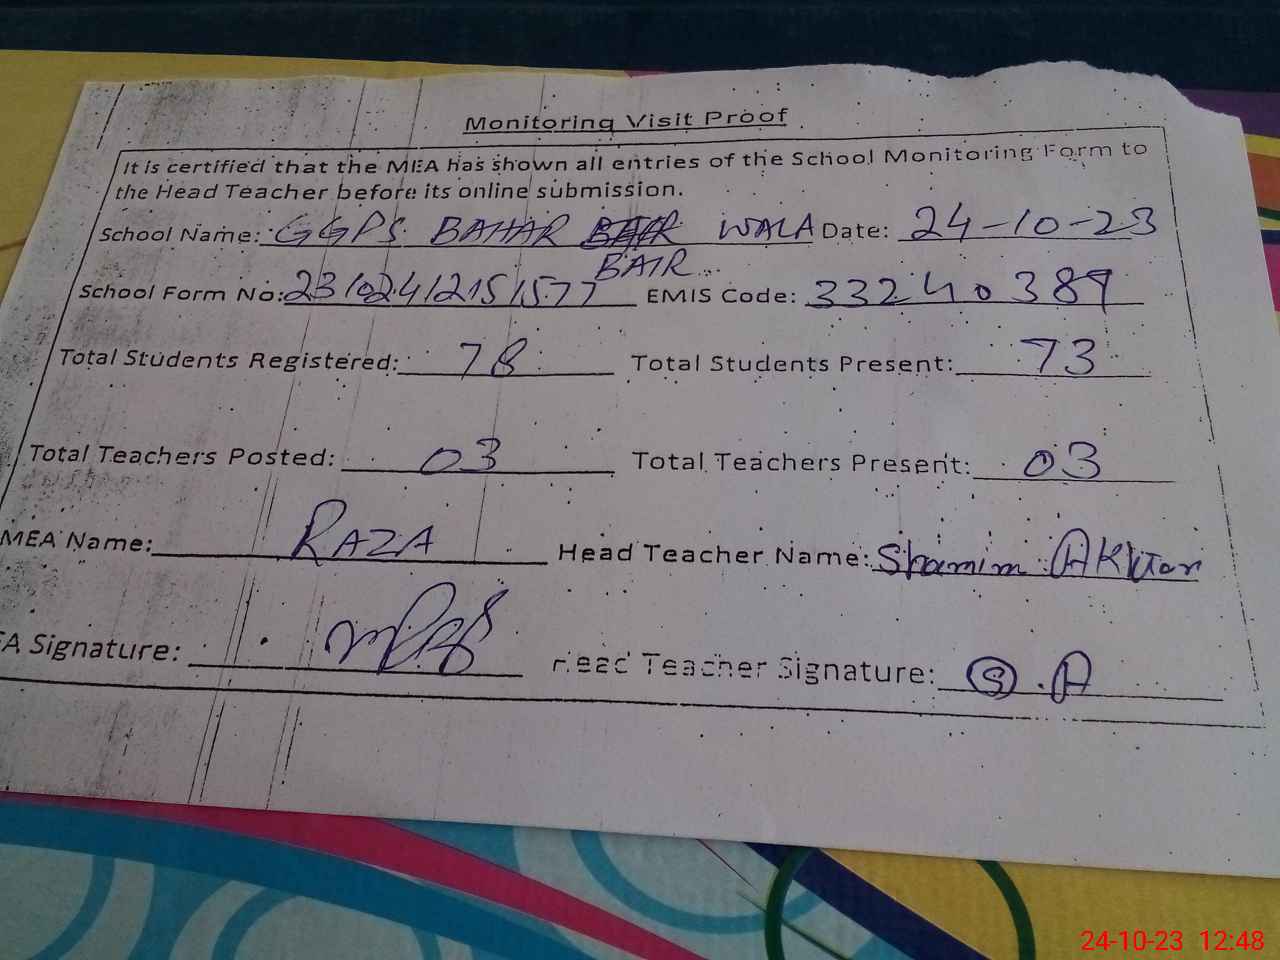 Monitoring Visit Proof
It is certified that the MEA has shown all entries of the School Monitoring Form to
the Head Teacher before its online submission.
School Name: GGPS BAHAR WALA Date: 24-10-23
BAIR
School Form No: 23102412151577 EMIS Code: 33240389
Total Students Registered: 78 Total Students Present: 73
Total Teachers Posted: 03 Total Teachers Present: 03
MEA Name: RAZA Head Teacher Name: Shamim Akhtar
EA Signature: Head Teacher Signature: S.A
24-10-23 12:48